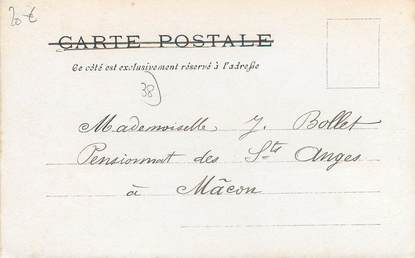 20 €
CARTE POSTALE
Ce côté est exclusivement réservé à l'adresse
38
Mademoiselle J. Bollet
Pensionnat des Sts Anges
à Mâcon